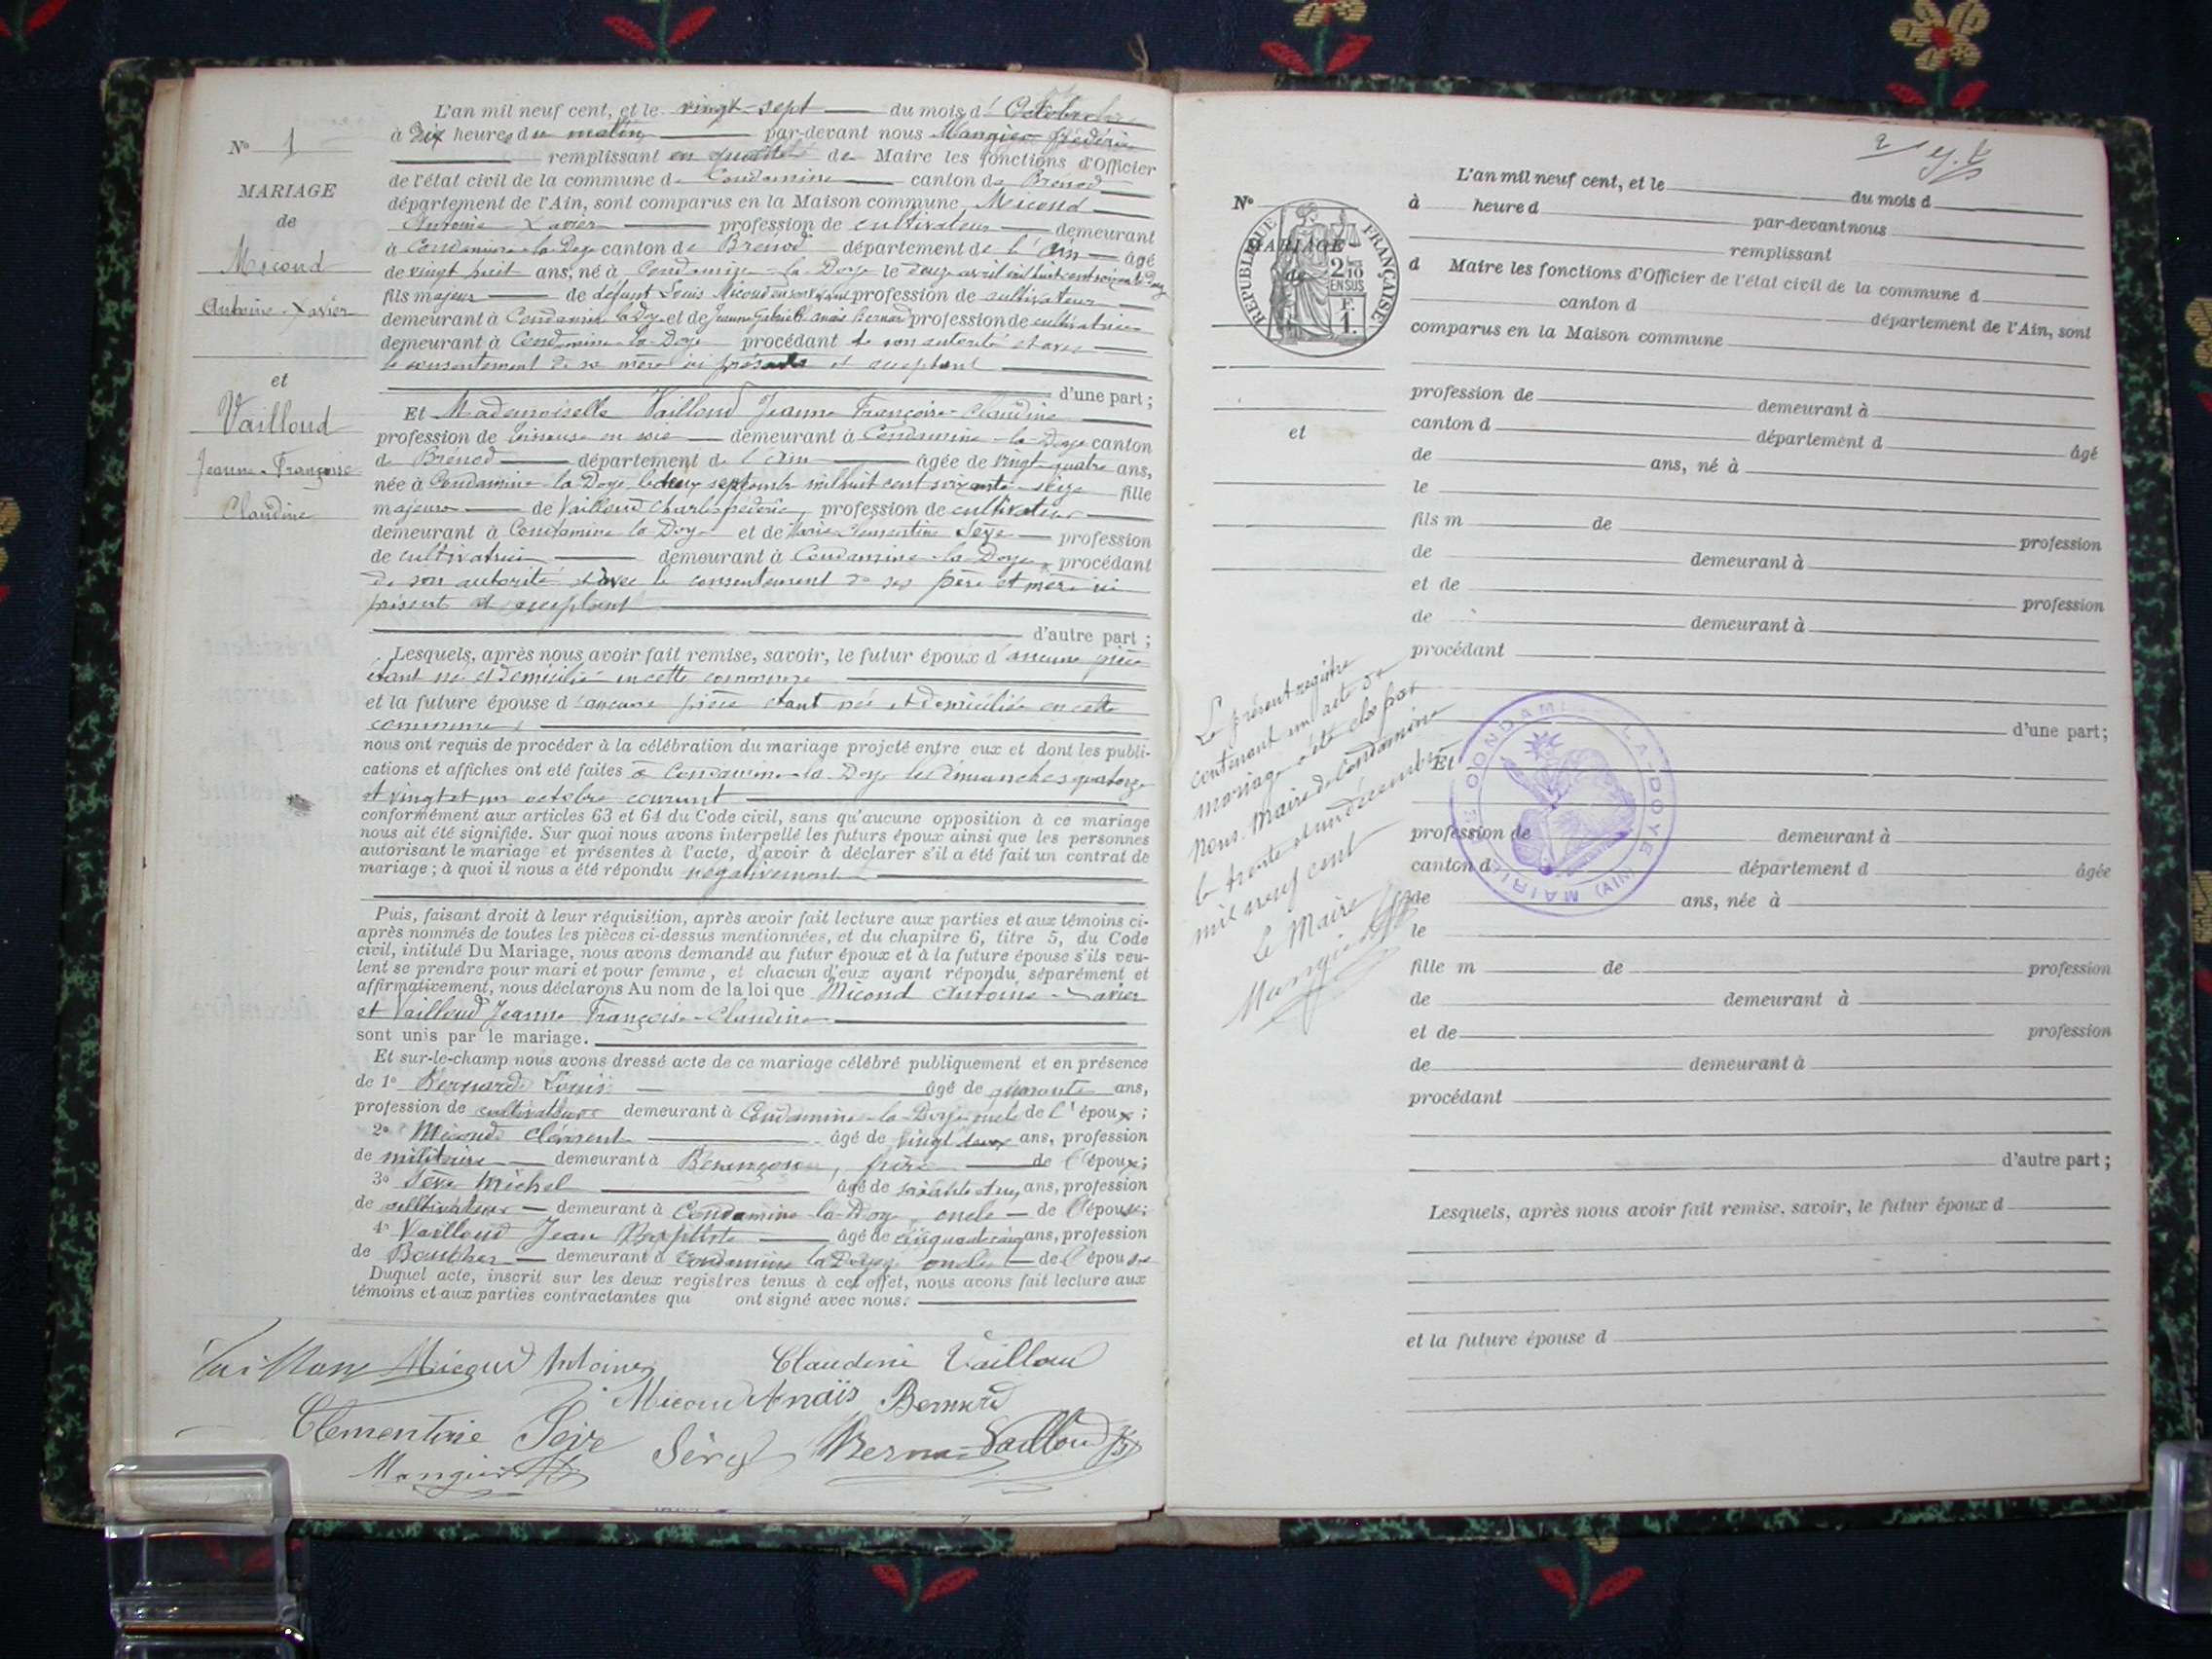 L'an mil neuf cent, et le vingt-sept du mois d'Octobre
à dix heures du matin par-devant nous Mangier frédéric
remplissant en qualité de Maire les fonctions d'Officier
de l'état civil de la commune de Condamine canton de Brénod
département de l'Ain, sont comparus en la Maison commune Micoud
Antoine-Xavier profession de cultivateur demeurant
à Condamine-la-Doye canton de Brénod département de l'Ain âgé
de vingt huit ans, né à Condamine-la-Doye le deux avril mil huit cent soixante
fils majeur de défunt Louis Micoud profession de cultivateur
demeurant à Condamine la Doye et de Jeanne Gabriel Anaïs Bernard profession de cultivatrice
demeurant à Condamine-la-Doye procédant de son autorité et avec
le consentement de sa mère ici présente et acceptant
d'une part ;
Et Mademoiselle Vailloud Jeanne Françoise-Claudine
profession de en soie demeurant à Condamine-la-Doye canton
de Brénod département de l'Ain âgée de vingt-quatre ans,
née à Condamine-la-Doye le deux septembre mil huit cent soixante-seize fille
majeure de Vailloud Charles frédéric, profession de cultivateur
demeurant à Condamine la Doye et de Marie Clémentine Sève profession
de cultivatrice demeurant à Condamine-la-Doye, procédant
de son autorité et avec le consentement de ses père et mère ici
présents et acceptant
d'autre part ;
Lesquels, après nous avoir fait remise, savoir, le futur époux d'aucune pièce
étant né et domicilié en cette commune
et la future épouse d'aucune pièce étant née et domiciliée en cette
commune
nous ont requis de procéder à la célébration du mariage projeté entre eux et dont les publi-
cations et affiches ont été faites à Condamine-la-Doye les dimanches quatorze
et vingt et un octobre courant
conformément aux articles 63 et 64 du Code civil, sans qu'aucune opposition à ce mariage
nous ait été signifiée. Sur quoi nous avons interpellé les futurs époux ainsi que les personnes
autorisant le mariage et présentes à l'acte, d'avoir à déclarer s'il a été fait un contrat de
mariage ; à quoi il nous a été répondu négativement
Puis, faisant droit à leur réquisition, après avoir fait lecture aux parties et aux témoins ci-
après nommés de toutes les pièces ci-dessus mentionnées, et du chapitre 6, titre 5, du Code
civil, intitulé Du Mariage, nous avons demandé au futur époux et à la future épouse s'ils veu-
lent se prendre pour mari et pour femme, et chacun d'eux ayant répondu séparément et
affirmativement, nous déclarons Au nom de la loi que Micoud Antoine-Xavier
et Vailloud Jeanne Françoise-Claudine
sont unis par le mariage.
Et sur-le-champ nous avons dressé acte de ce mariage célébré publiquement et en présence
de 1° Bernard Louis âgé de quarante ans,
profession de cultivateur demeurant à Condamine-la-Doye oncle de l'époux ;
2° Micoud Clément âgé de vingt deux ans, profession
de militaire demeurant à Besançon, frère de l'époux ;
3° Sève Michel âgé de soixante et un ans, profession
de cultivateur demeurant à Condamine-la-Doye, oncle de l'épouse ;
4° Vailloud Jean Baptiste âgé de cinquante cinq ans, profession
de Boucher demeurant à Condamine la Doye oncle de l'épouse
Duquel acte, inscrit sur les deux registres tenus à cet effet, nous avons fait lecture aux
témoins et aux parties contractantes qui ont signé avec nous.
Micoud Antoine Claudine Vailloud
Micoud Anaïs Bernard
Clementine Seve Sève Bernard Vailloud
Mangier
N° 1
MARIAGE
de
Micoud
Antoine-Xavier
et
Vailloud
Jeanne-Françoise
Claudine
2
L'an mil neuf cent, et le du mois d
à heure d par-devant nous
remplissant
d Maire les fonctions d'Officier de l'état civil de la commune d
canton d département de l'Ain, sont
comparus en la Maison commune
profession de demeurant à
canton d département d âgé
de ans, né à
le
fils m de profession
de demeurant à
et de profession
de demeurant à
procédant
d'une part;
Et
profession de demeurant à
canton d département d âgée
de ans, née à
le
fille m de profession
de demeurant à
et de profession
de demeurant à
procédant
d'autre part ;
Lesquels, après nous avoir fait remise, savoir, le futur époux d
et la future épouse d
N°
MARIAGE
de
et
RÉPUBLIQUE FRANÇAISE
2/10
EN SUS
F.
1.
Le présent registre
contenant un acte de
mariage a été clos par
nous Maire de Condamine
le trente et un décembre
mil neuf cent
Le Maire
Mangier
MAIRIE DE CONDAMINE LA-DOYE (AIN)